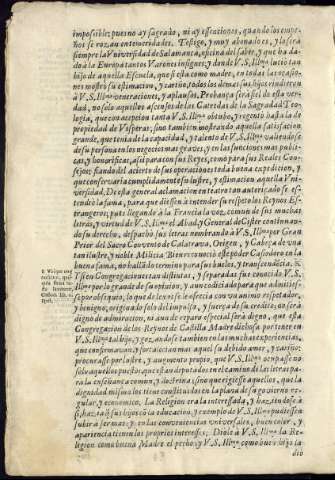 imposibles; pues no ay sagrado, ni ay essenciones, quando los empe-
ños se rozan en temeridades. Testigo, y muy abonado es, y lo serà
siempre la Vniversidad de Salamanca, oficina del saber, y que ha da-
do à la Europa tantos Varones insignes; y donde V.S. Illma luciò tan
hijo de aquella Escuela, que si esta como madre, en todas las ocasio-
nes mostrò su estimacion, y cariño, todos los demàs sus hijos rendieron
à V.S. Illma veneraciones, y aplausos. Probança serà fiel de esta ver-
dad, no solo aquellos ascensos de las Catedras de la Sagrada Teo-
logia, que con aceptacion tanta V.S. Illma obtuvo, y regentò hasta la de
propiedad de Visperas; sino tambien mostrando aquella satisfaccion
grande, que tenia de la capacidad, y talento de V.S. Illma valiendose
de su persona en los negocios mas graves, y en las funciones mas publi-
cas, y honorificas, assi para con sus Reyes, como para sus Reales Con-
sejos; fiando del acierto de sus operaciones toda buena expedicion, y
que conservaria cumplidamente su lustre, y estimacion aquella Vni-
versidad. De esta general aclamacion en teatro tan autorizado se es-
tendiò la fama, para que diessen à entender su respeto los Reynos Es-
trangeros; pues llegando à la Francia la voz comun de sus muchas
letras, y virtud de V.S. Illma el Abad, y General de Cister continuan-
do su derecho, despachò sus letras nombrando à V.S. Illma por Gran
Prior del Sacro Convento de Calatrava, Origen, y Cabeça de vna
tan ilustre, y noble Milicia. Bien reconociò este poder Casiodoro en la
buena fama, no hallando termino para su buelo, y transcendencia.
Y si en Congregaciones tan distintas, y separadas fue conocido V.S.
Illma por lo grande de su opinion, y aun codiciado para que admities-
se por obsequio, lo que de lexos se le ofrecia con vn animo respetador,
y benigno, originado solo del impulso, y fuerça de su credito; no serà
digno de admiracion, ni aun de reparo especial serà digno, que esta
Congregacion de los Reynos de Castilla Madre dichosa por tener en
V.S. Illma tal hijo, y gozando se tambien en las muchas experiencias,
que confirmavan, y fortalecian mas aquel su debido amor, y cariño:
procurasse por lustre, y augmento propio, que V.S. Illma ocupasse no
solo aquellos puestos que estàn diputados en el camino de las letras pa-
ra la enseñança comun, y doctrina; sino que rigiesse aquellos, que la
dignidad misma los tiene constituidos en la plana de su govierno re-
gular, y economico. La Religion era la interessada, y haziendose à
si, haziendo à sus hijos co la educacion, y exemplo de V.S. Illma pudiessen
subir à ser mas; y en las conveniencias vniversales, buen color, y
apariencia tienen los propios interesses. Diòle à V.S. Illma la Re-
ligion como buena Madre el pecho; y V.S. Illma como buen hijo la
dio